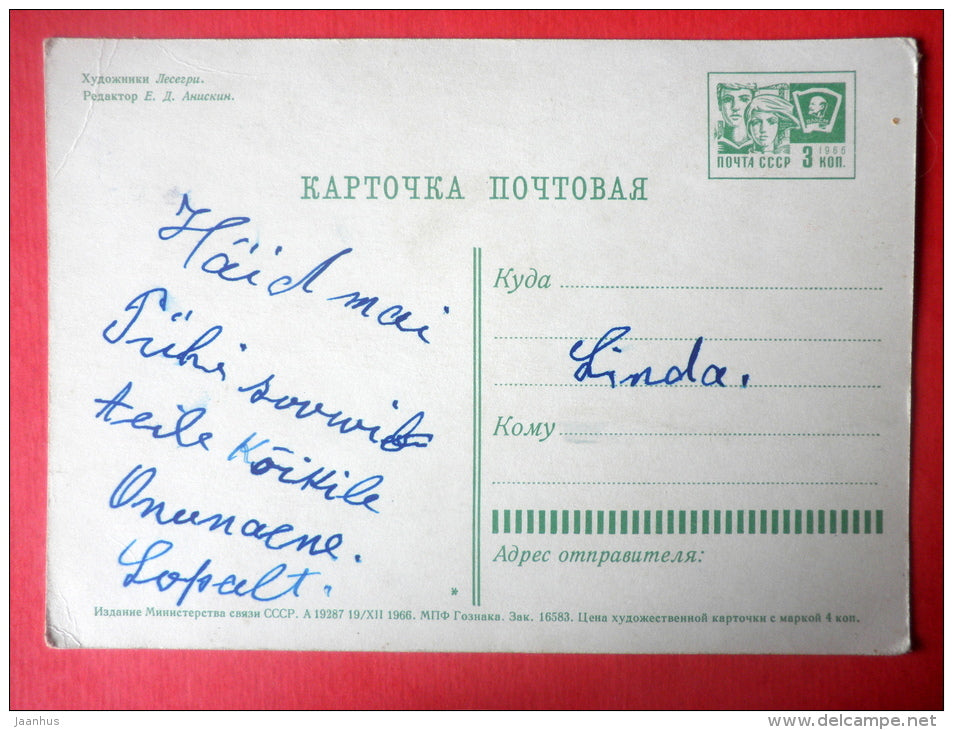 Художники Лесегри.
Редактор Е. Д. Анискин.
1966
ПОЧТА СССР 3 КОП.
КАРТОЧКА ПОЧТОВАЯ
Häid mai
Pühi soovwib
teile Kõikile
Onunaene.
Lopalt.
Куда
Linda.
Кому
Адрес отправителя:
*
Издание Министерства связи СССР. А 19287 19/XII 1966. МПФ Гознака. Зак. 16583. Цена художественной карточки с маркой 4 коп.
Jaanhus
www.delcampe.net